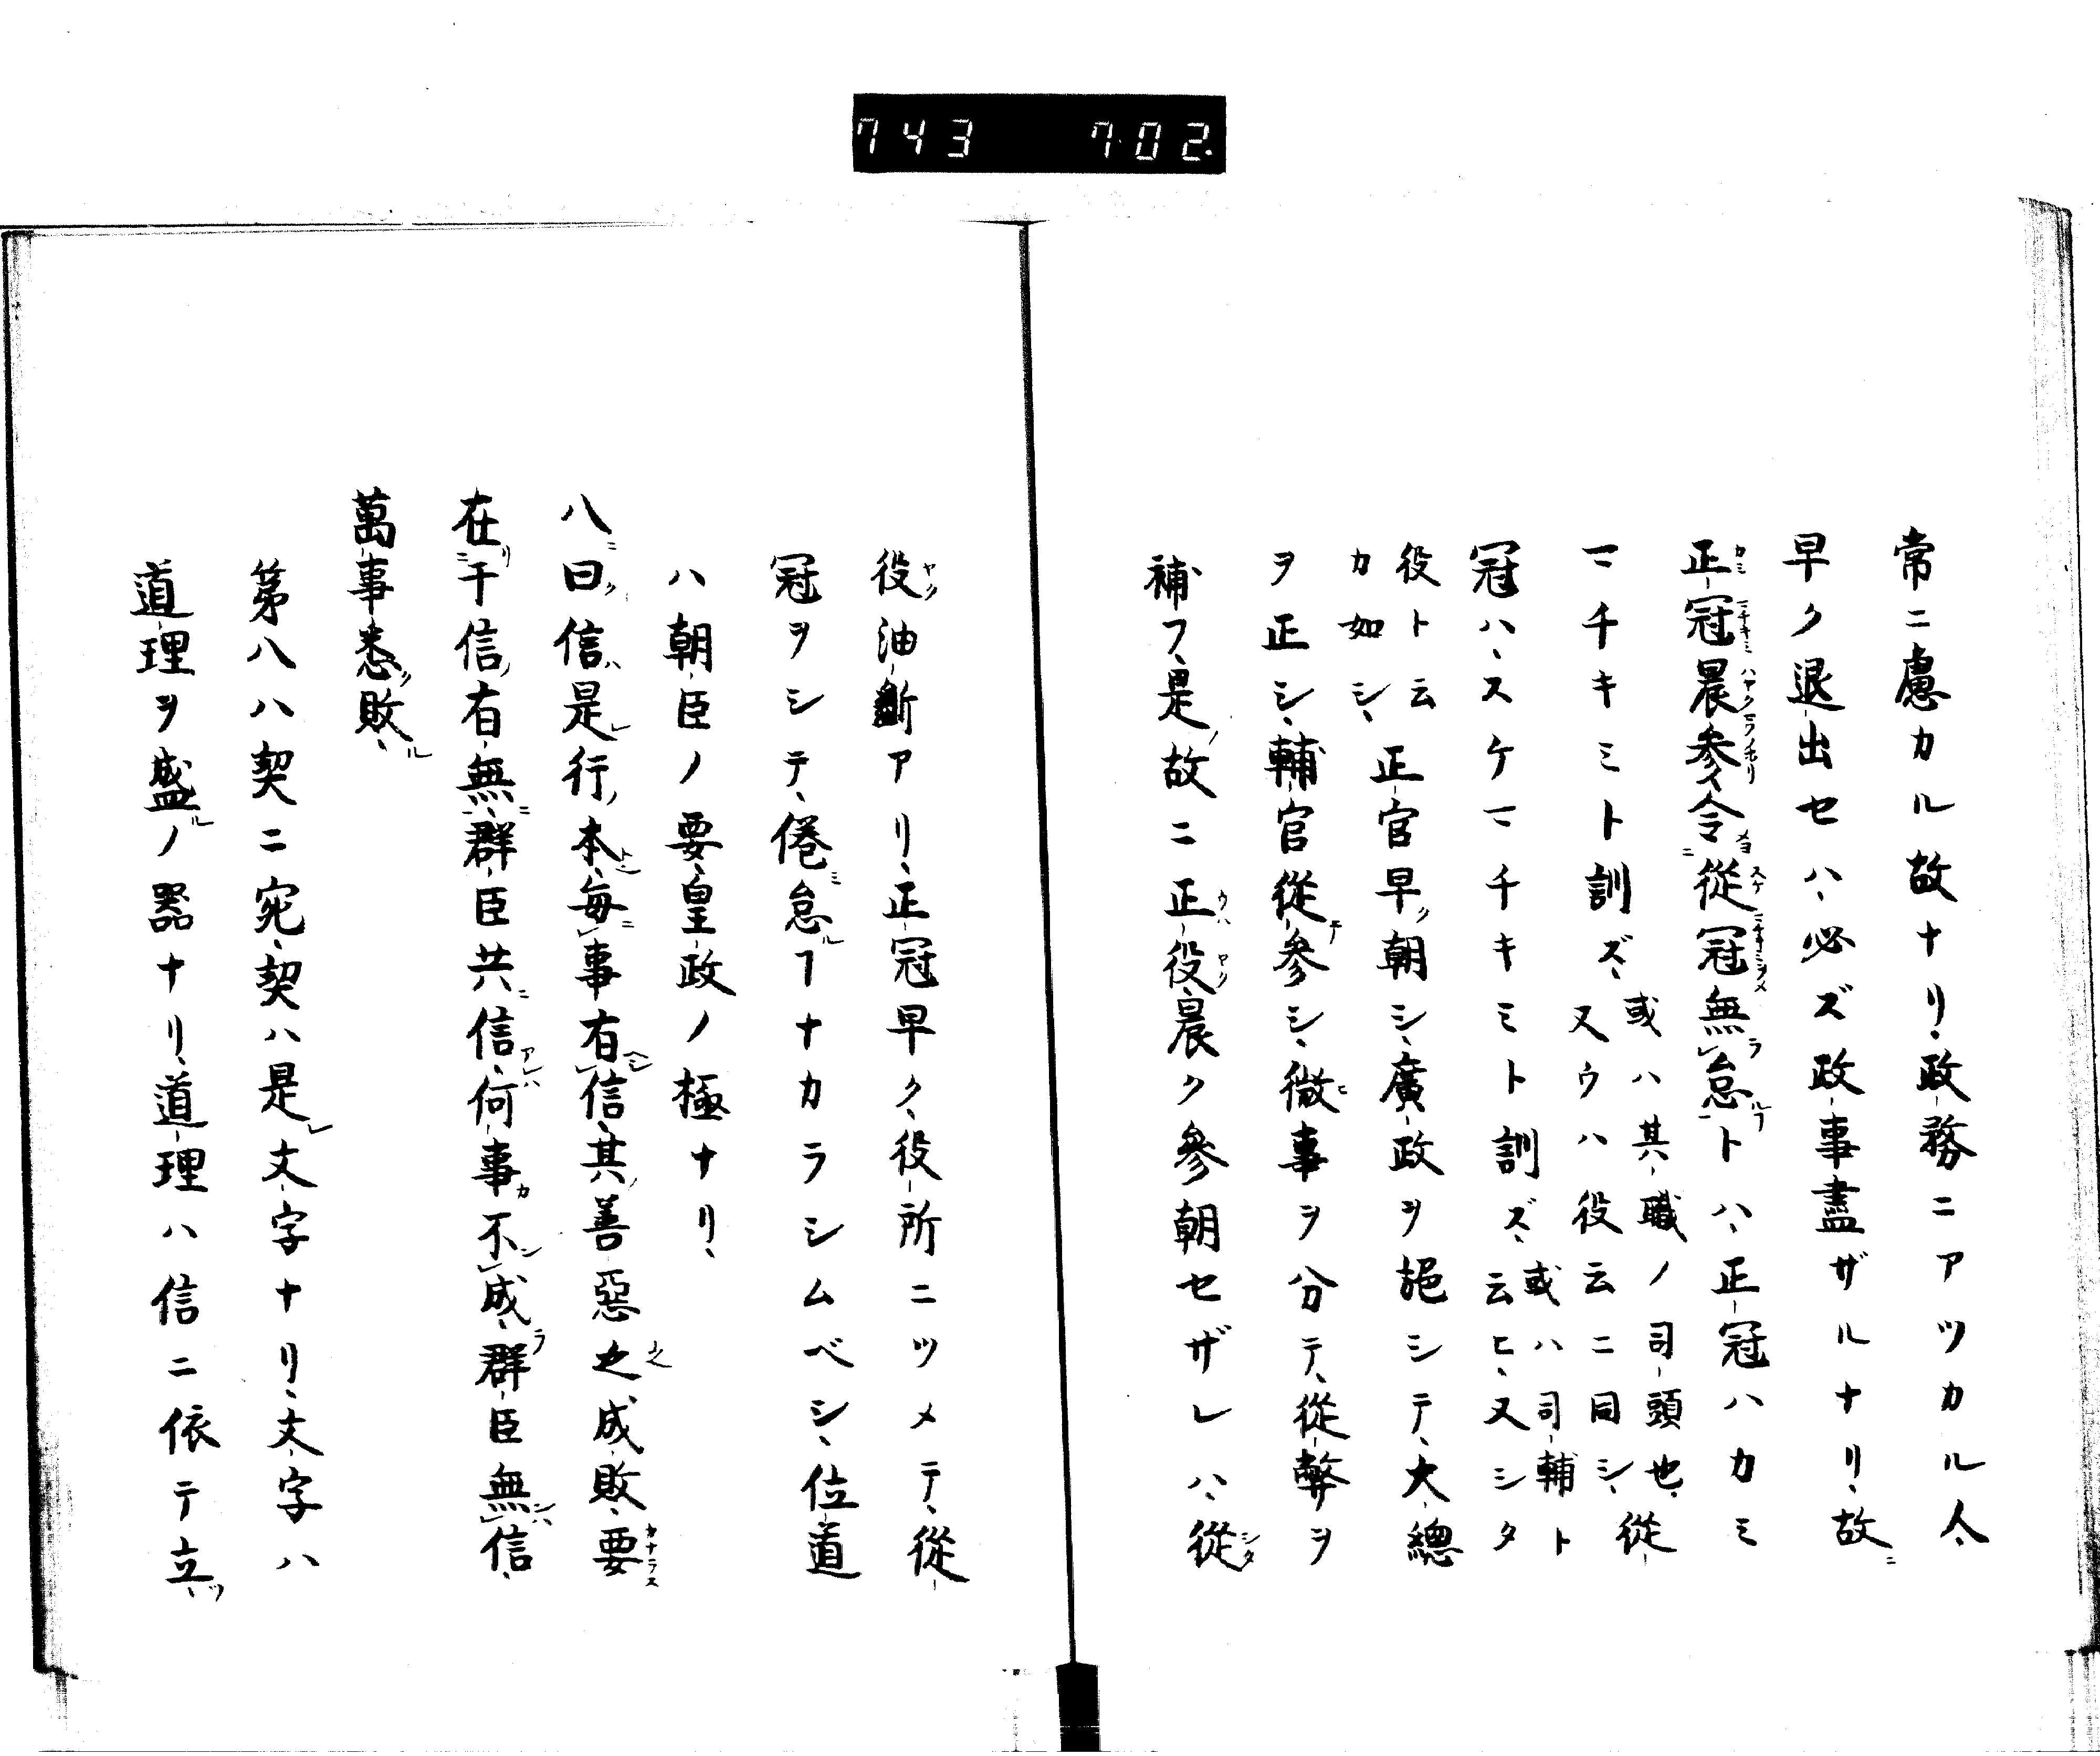 743 702.
常ニ慮カル故ナリ、政務ニアツカル人、
早ク退出セハ、必ズ政事盡ザルナリ、故ニ
正冠晨参、令從冠無怠トハ、正冠ハカミ
マチキミト訓ズ、或ハ其職ノ司頭也、從
又ウハ役云ニ同シ、
冠ハ、スケマチキミト訓ズ、或ハ司輔ト
云ヒ、又シタ
役ト云
カ如シ、正官早ク朝シ、廣政ヲ摠シテ、大總
ヲ正シ、輔官從テ参シ、微事ヲ分テ、從弊ヲ
補フ、是ノ故ニ正役晨ク參朝セザレハ、從
役油斷アリ、正冠早ク、役所ニツメテ、從
冠ヲシテ、倦ミ怠ルヿナカラシムベシ、位道
ハ朝臣ノ要、皇政ノ極ナリ、
八ニ曰ク信ハ是レ行ノ本、毎事有信、其善惡之成敗、要
在于信有無、群臣共信、何事不成、群臣無信、
萬事悉敗、
第八ハ契ニ宛、契ハ是レ文字ナリ、文字ハ
道理ヲ盛ルノ器ナリ、道理ハ信ニ依テ立ツ、